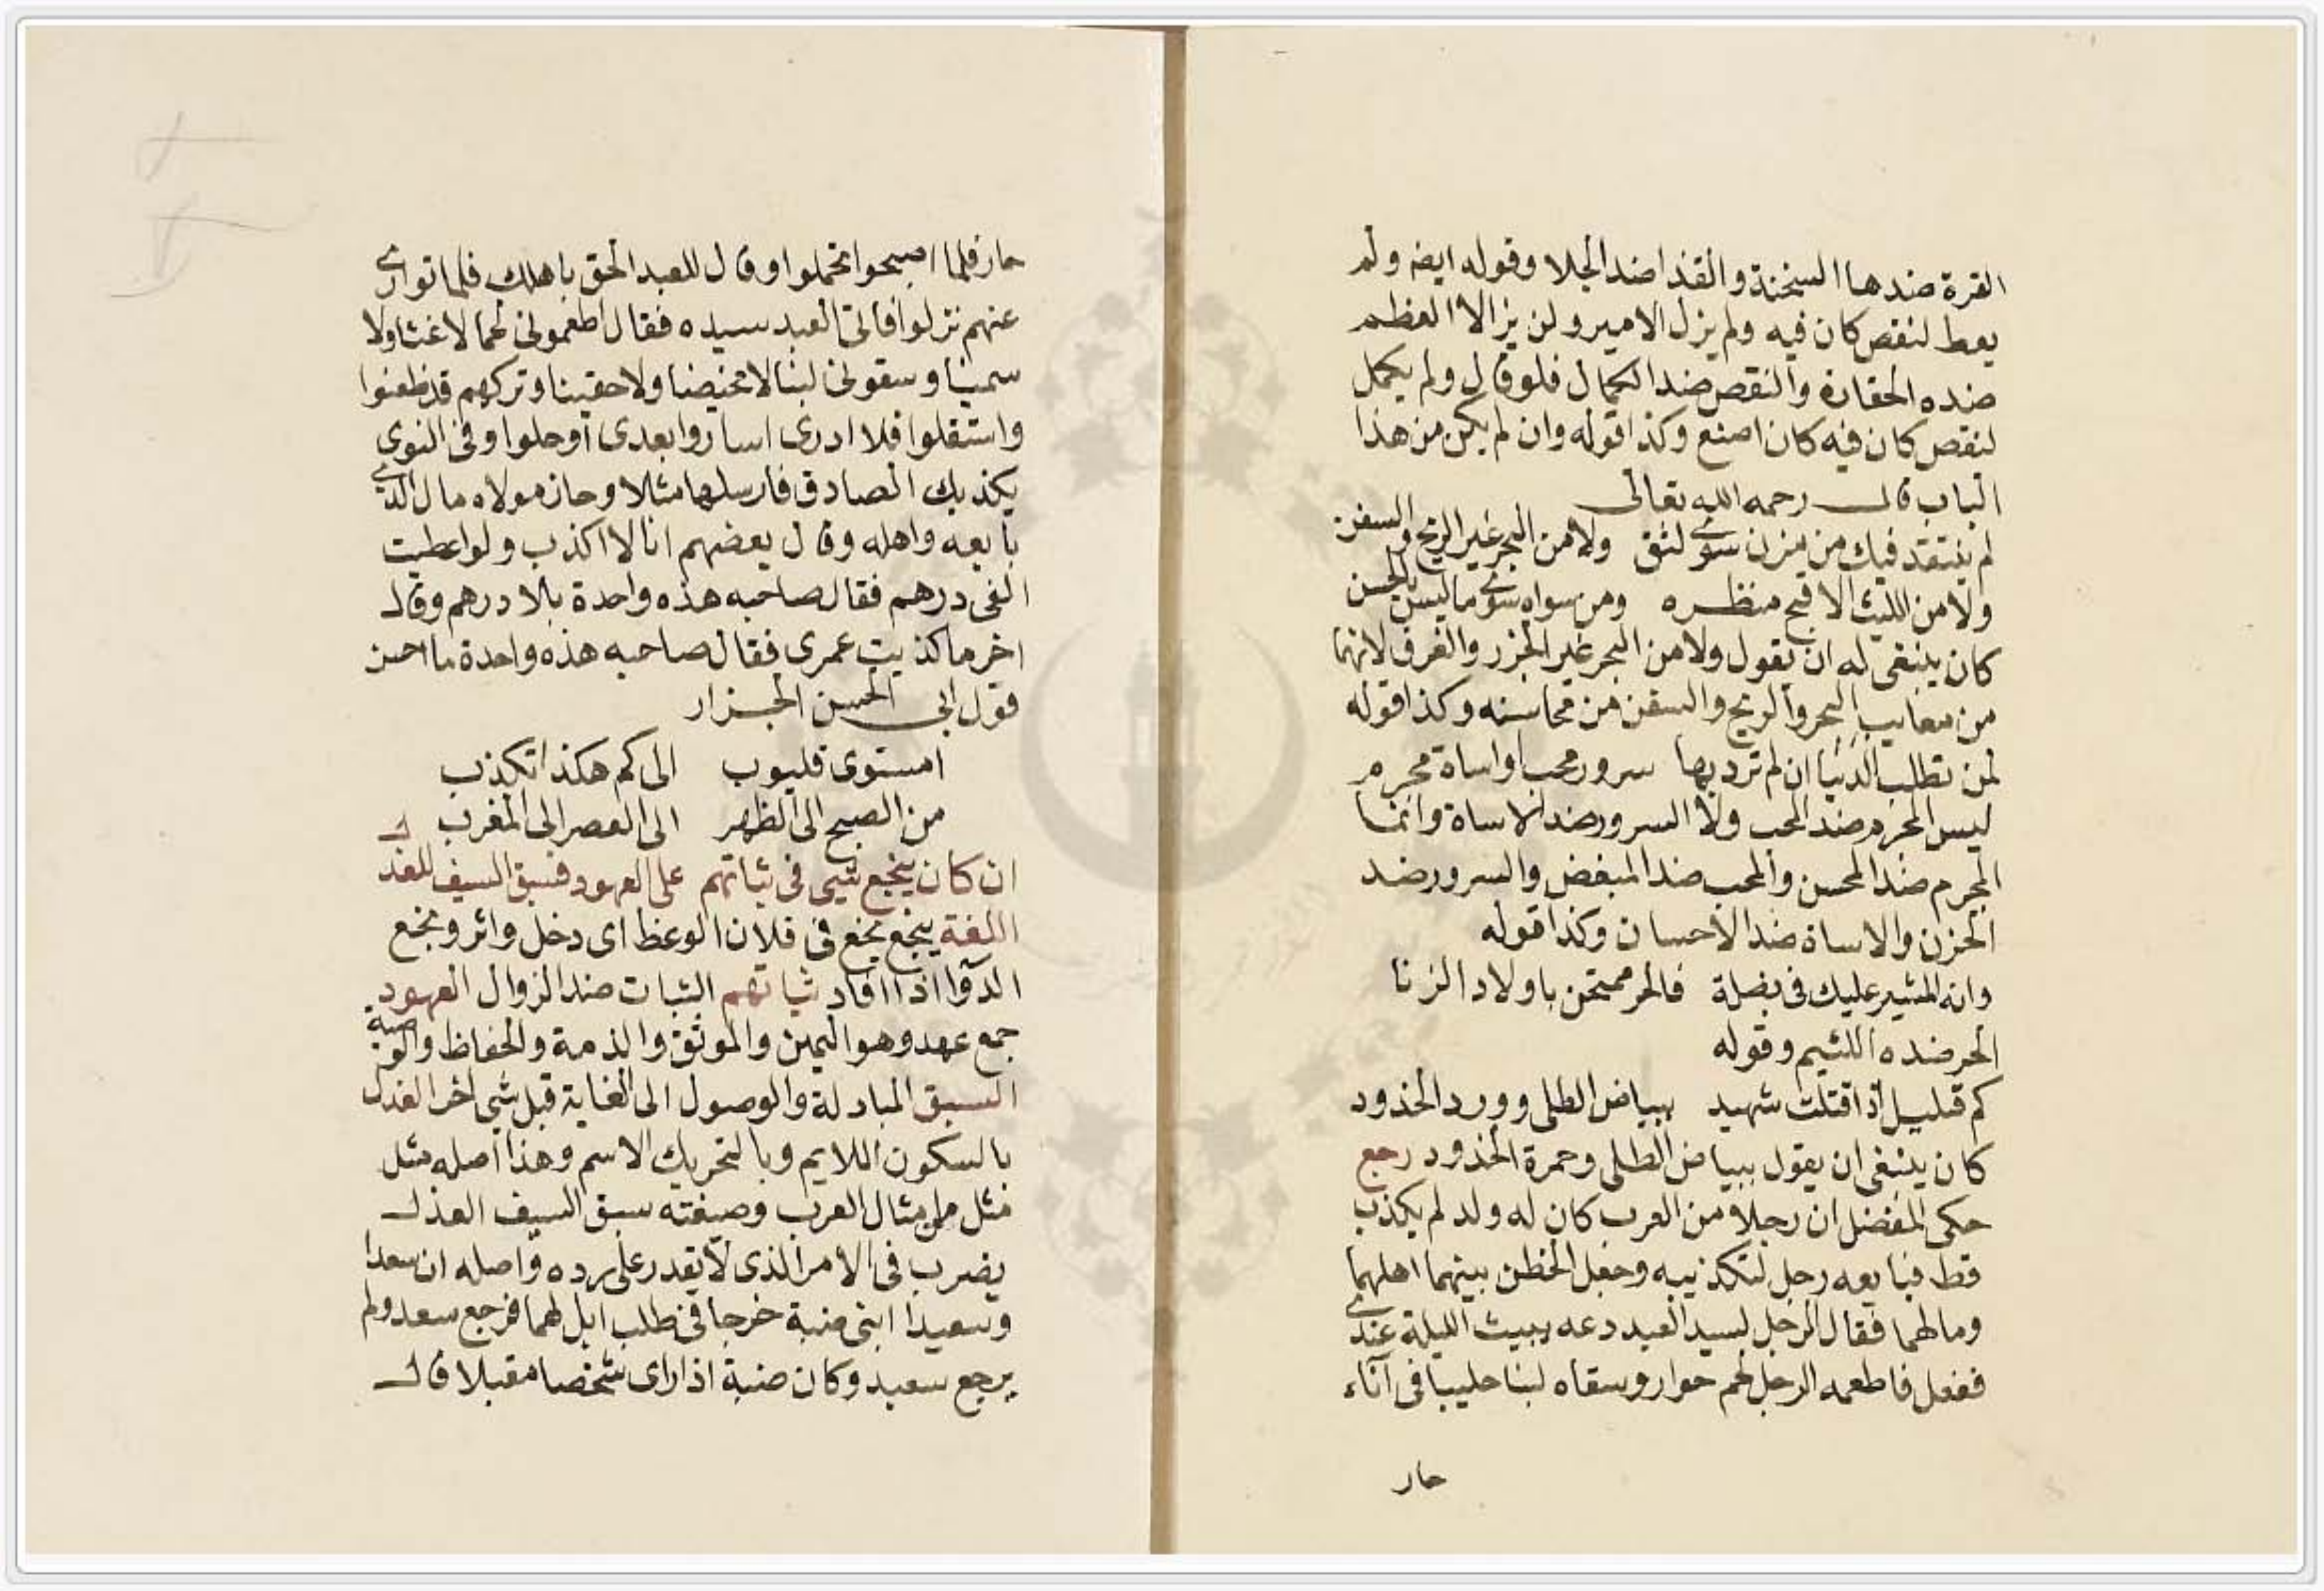 القرة ضدها السخنة والقذا ضد الجلا وقوله ايضه ولم
يعط لنقص كان فيه ولم يزل الامير ولن يزالا العظم
ضده الحقارة والنقص ضد الكمال فلو قال ولم يكمل
لنقص كان فيه كان اصنع وكذا قوله وان لم يكن من هذا
الباب قال رحمه الله تعالى
لم يفتقد فيك من يزن سوى لثق ولا من البحر غير الريح والسفن
ولا من الليث الا قبح منظره ومن سواه سوى ما ليس بالحسن
كان ينبغي له ان يقول ولا من البحر غير الجزر والغرق لانهما
من معايب البحر والريح والسفن من محاسنه وكذا قوله
لمن تطلب الدنيا ان لم ترد بها سرور محب او اساة مجرم
ليس المجرم ضد المحب ولا السرور ضد الاساة وانما
المجرم ضد المحسن والمحب ضد المبغض والسرور ضد
الحزن والاساة ضد الاحسان وكذا قوله
وانه المشير عليك في بضلة فالحر ممتحن باولاد الزنا
الحر ضده اللئيم وقوله
كم قتيل اذا قتلت شهيد ببياض الطلى وورد الخدود
كان ينبغي ان يقول ببياض الطلى وحمرة الخدود رجع
حكى المفضل ان رجلا من العرب كان له ولد لم يكذب
قط فبايعه رجل لتكذيبه وجعل الخطن بينهما اهلهما
ومالهما فقال الرجل لسيد العبد دعه يبيت الليلة عندي
ففعل فاطعمه الرجل لحم حوار وسقاه لبنا حليبا في آناء
حار
حار فلما اصبحوا تحملوا وقال للعبد الحق باهلك فلما توارى
عنهم نزلوا فاتى العبد سيده فقال اطعموني لحما لا غثا ولا
سمينا وسقوني لبنا لا مخيضا ولا حقينا وتركهم قد ظعنوا
واستقلوا فلا ادرى اساروا بعدى او حلوا وفي النوى
يكذبك الصادق فارسلها مثلا وحاز مولاه مال الذي
بايعه واهله وقال بعضهم انا لا اكذب ولو اعطيت
الفي درهم فقال صاحبه هذه واحدة بلا درهم وقال
اخر ما كذبت عمرى فقال صاحبه هذه واحدة ما احسن
قول ابي الحسن الجزار
امستوى قليوب الى كم هكذا تكذب
من الصبح الى الظهر الى العصر الى المغرب
ان كان ينجع شيى في ثباتهم على العهود فسبق السيف للعذل
اللغة ينجع نجع في فلان الوعظ اى دخل واثر ونجع
الدوا اذا افاد ثباتهم الثبات ضد الزوال العهود
جمع عهد وهو اليمين والموثق والذمة والحفاظ والوصية
السبق المبادلة والوصول الى الغاية قبل شي اخر العذل
بالسكون اللايم وبالتحريك الاسم وهذا اصله مثل
مثل من امثال العرب وصيغته سبق السيف العذل
يضرب في الامر الذى لا يقدر على رده واصله ان سعدا
وسعيدا ابنى ضبة خرجا في طلب ابل لهما فرجع سعد ولم
يرجع سعيد وكان ضبة اذا راى شخصا مقبلا قال